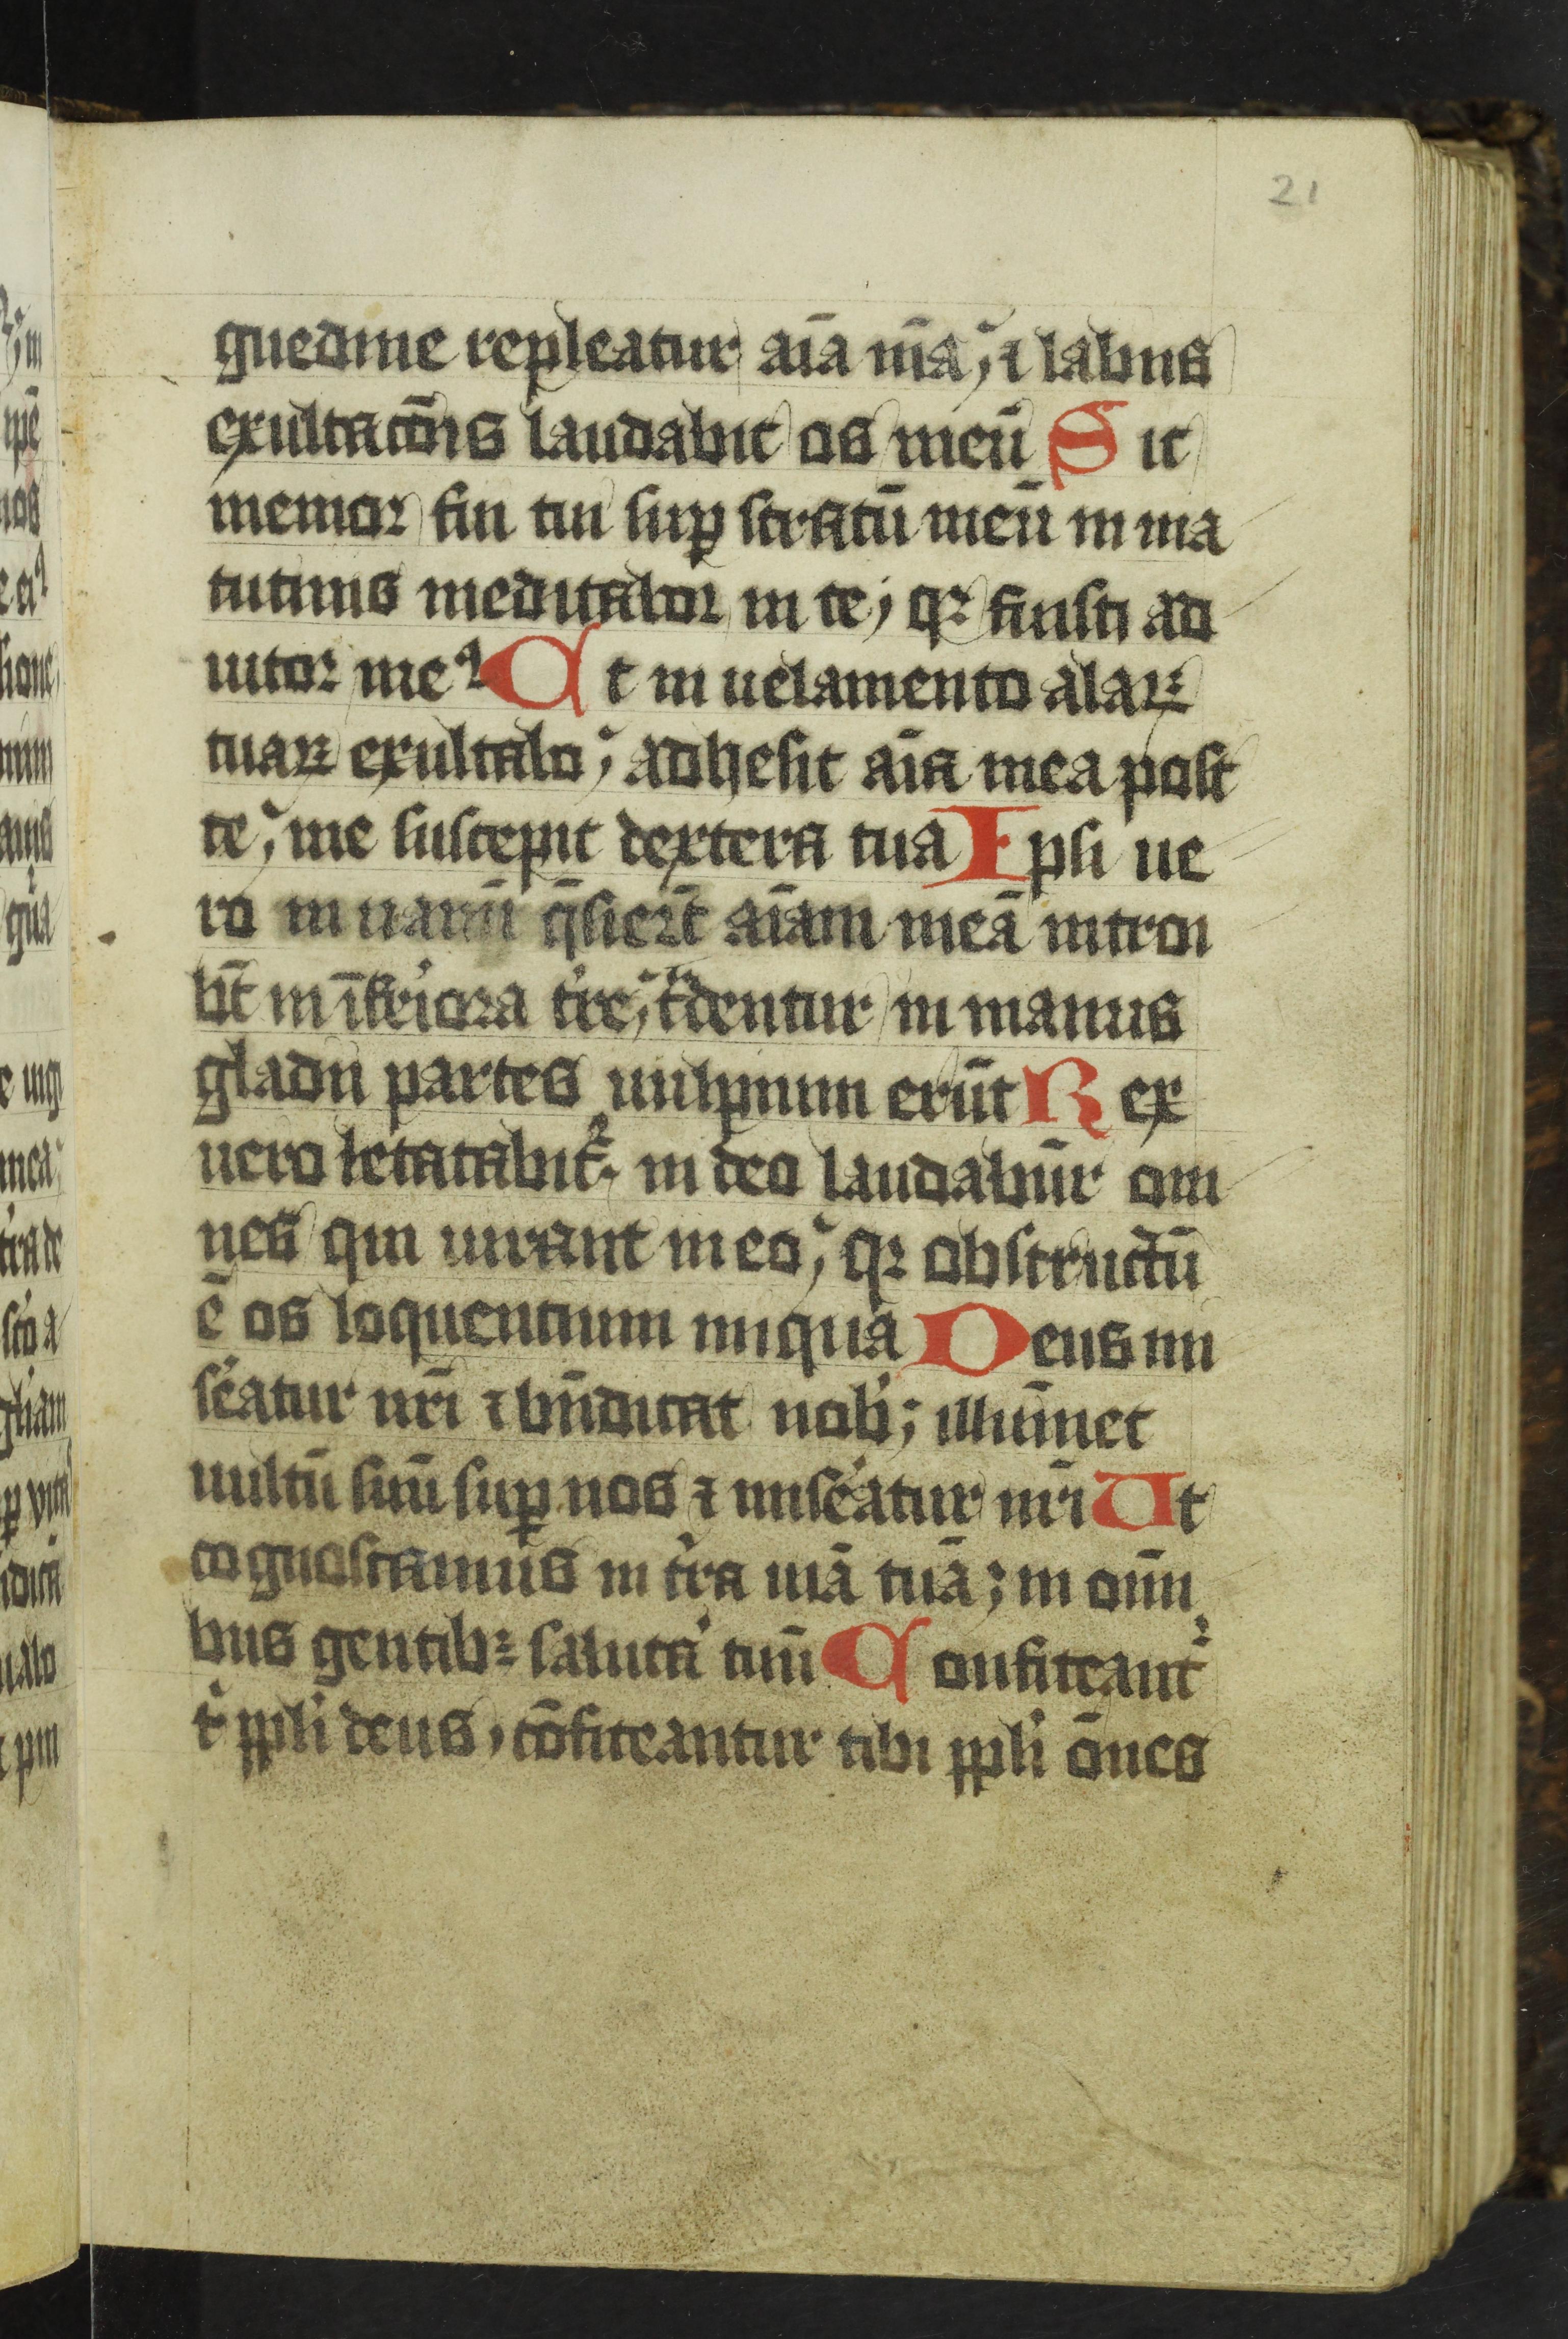 21
guedine repleatur aīa m̄a ⁊ labiis
exultac̄ōis laudabit os meū Sic
memor fui tui sup̱ stratū meū in ma
tutinis meditabor in te; qꝛ fuisti ad
iutor meꝰ Et in uelamento alaꝝ
tuaꝝ exultabo; adhesit aīa mea post
te; me suscepit dextera tua Ipsi ue
ro in uanū q̄sier̄t aīam meā introi
bt̄ in īferiora t̓re; tͣdentur in manus
gladii partes uulpium erūt Rex
uero letatabit᷑ in deo laudabūr om
nes qui iurant in eo; qꝛ obstructū
ē os loquentium iniqua Deus mi
se᷑atur nr̄i ⁊ bn̄dicat nob̓; illūinet
uultū suū suꝑ nos ⁊ mise᷑atur nr̄i Ut
cognoscamus in t̓ra uiā tuā; in omī
bus gentibꝫ saluta᷑ tuū Confiteant᷑
t̓ ppl̓i deus, cōfiteantur tibi ppl̓i ōnes